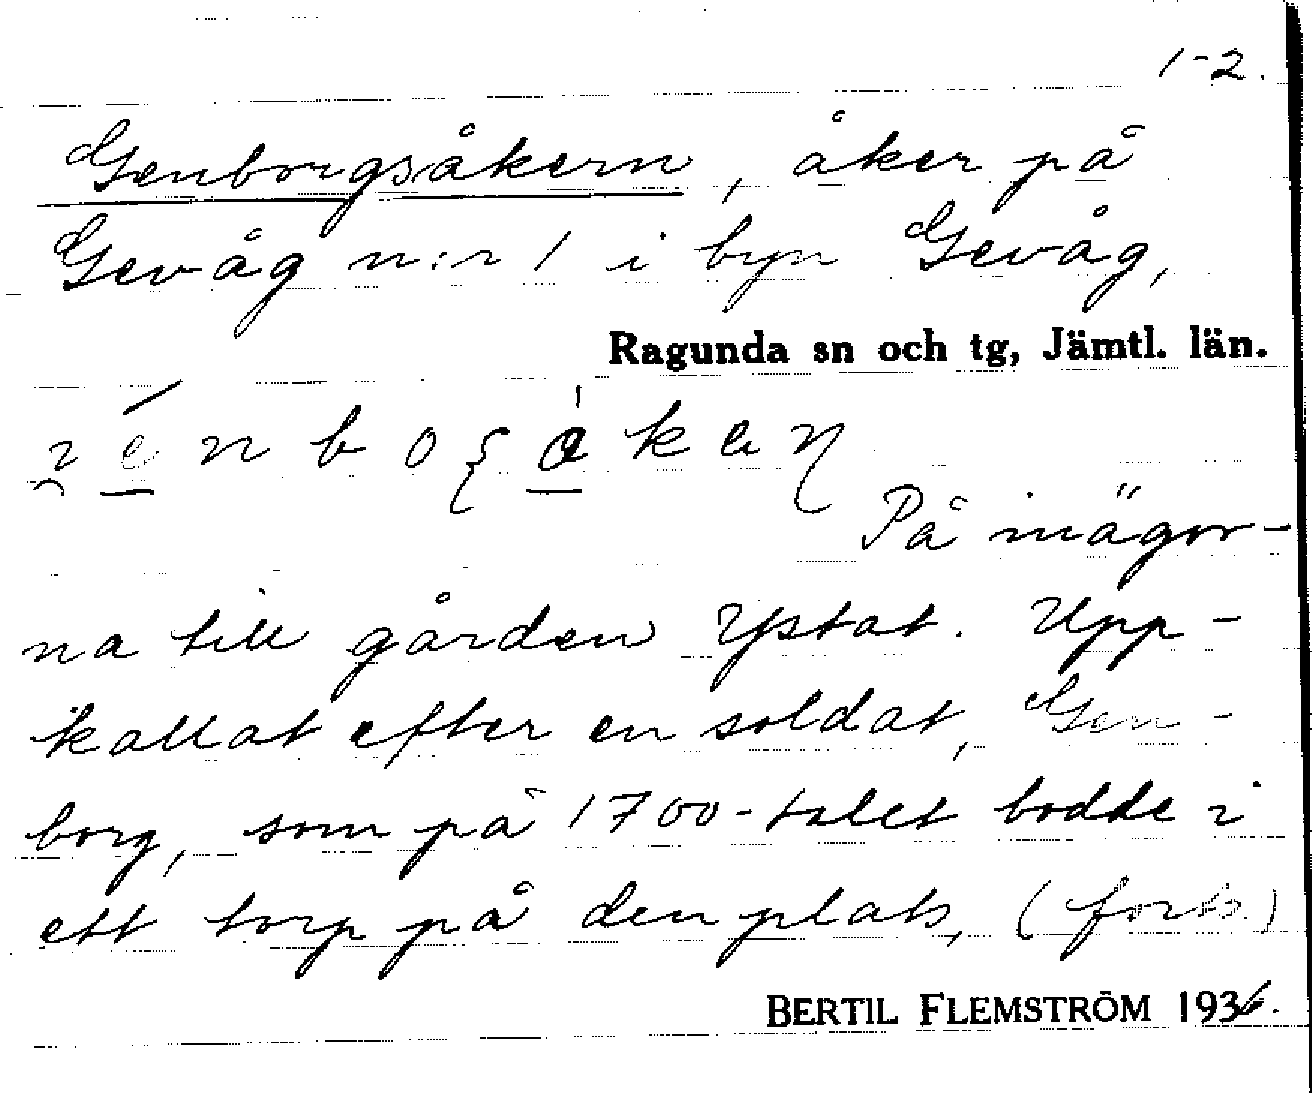 1-2.
Genborgsåkern, åker på
Gevåg n:r 1 i byn Gevåg,
Ragunda sn och tg, Jämtl. län.
På inägor-
na till gården Ystat. Upp-
kallat efter en soldat, Gen-
borg, som på 1700-talet bodde i
ett torp på den plats, (forts.)
BERTIL FLEMSTRÖM 1936.